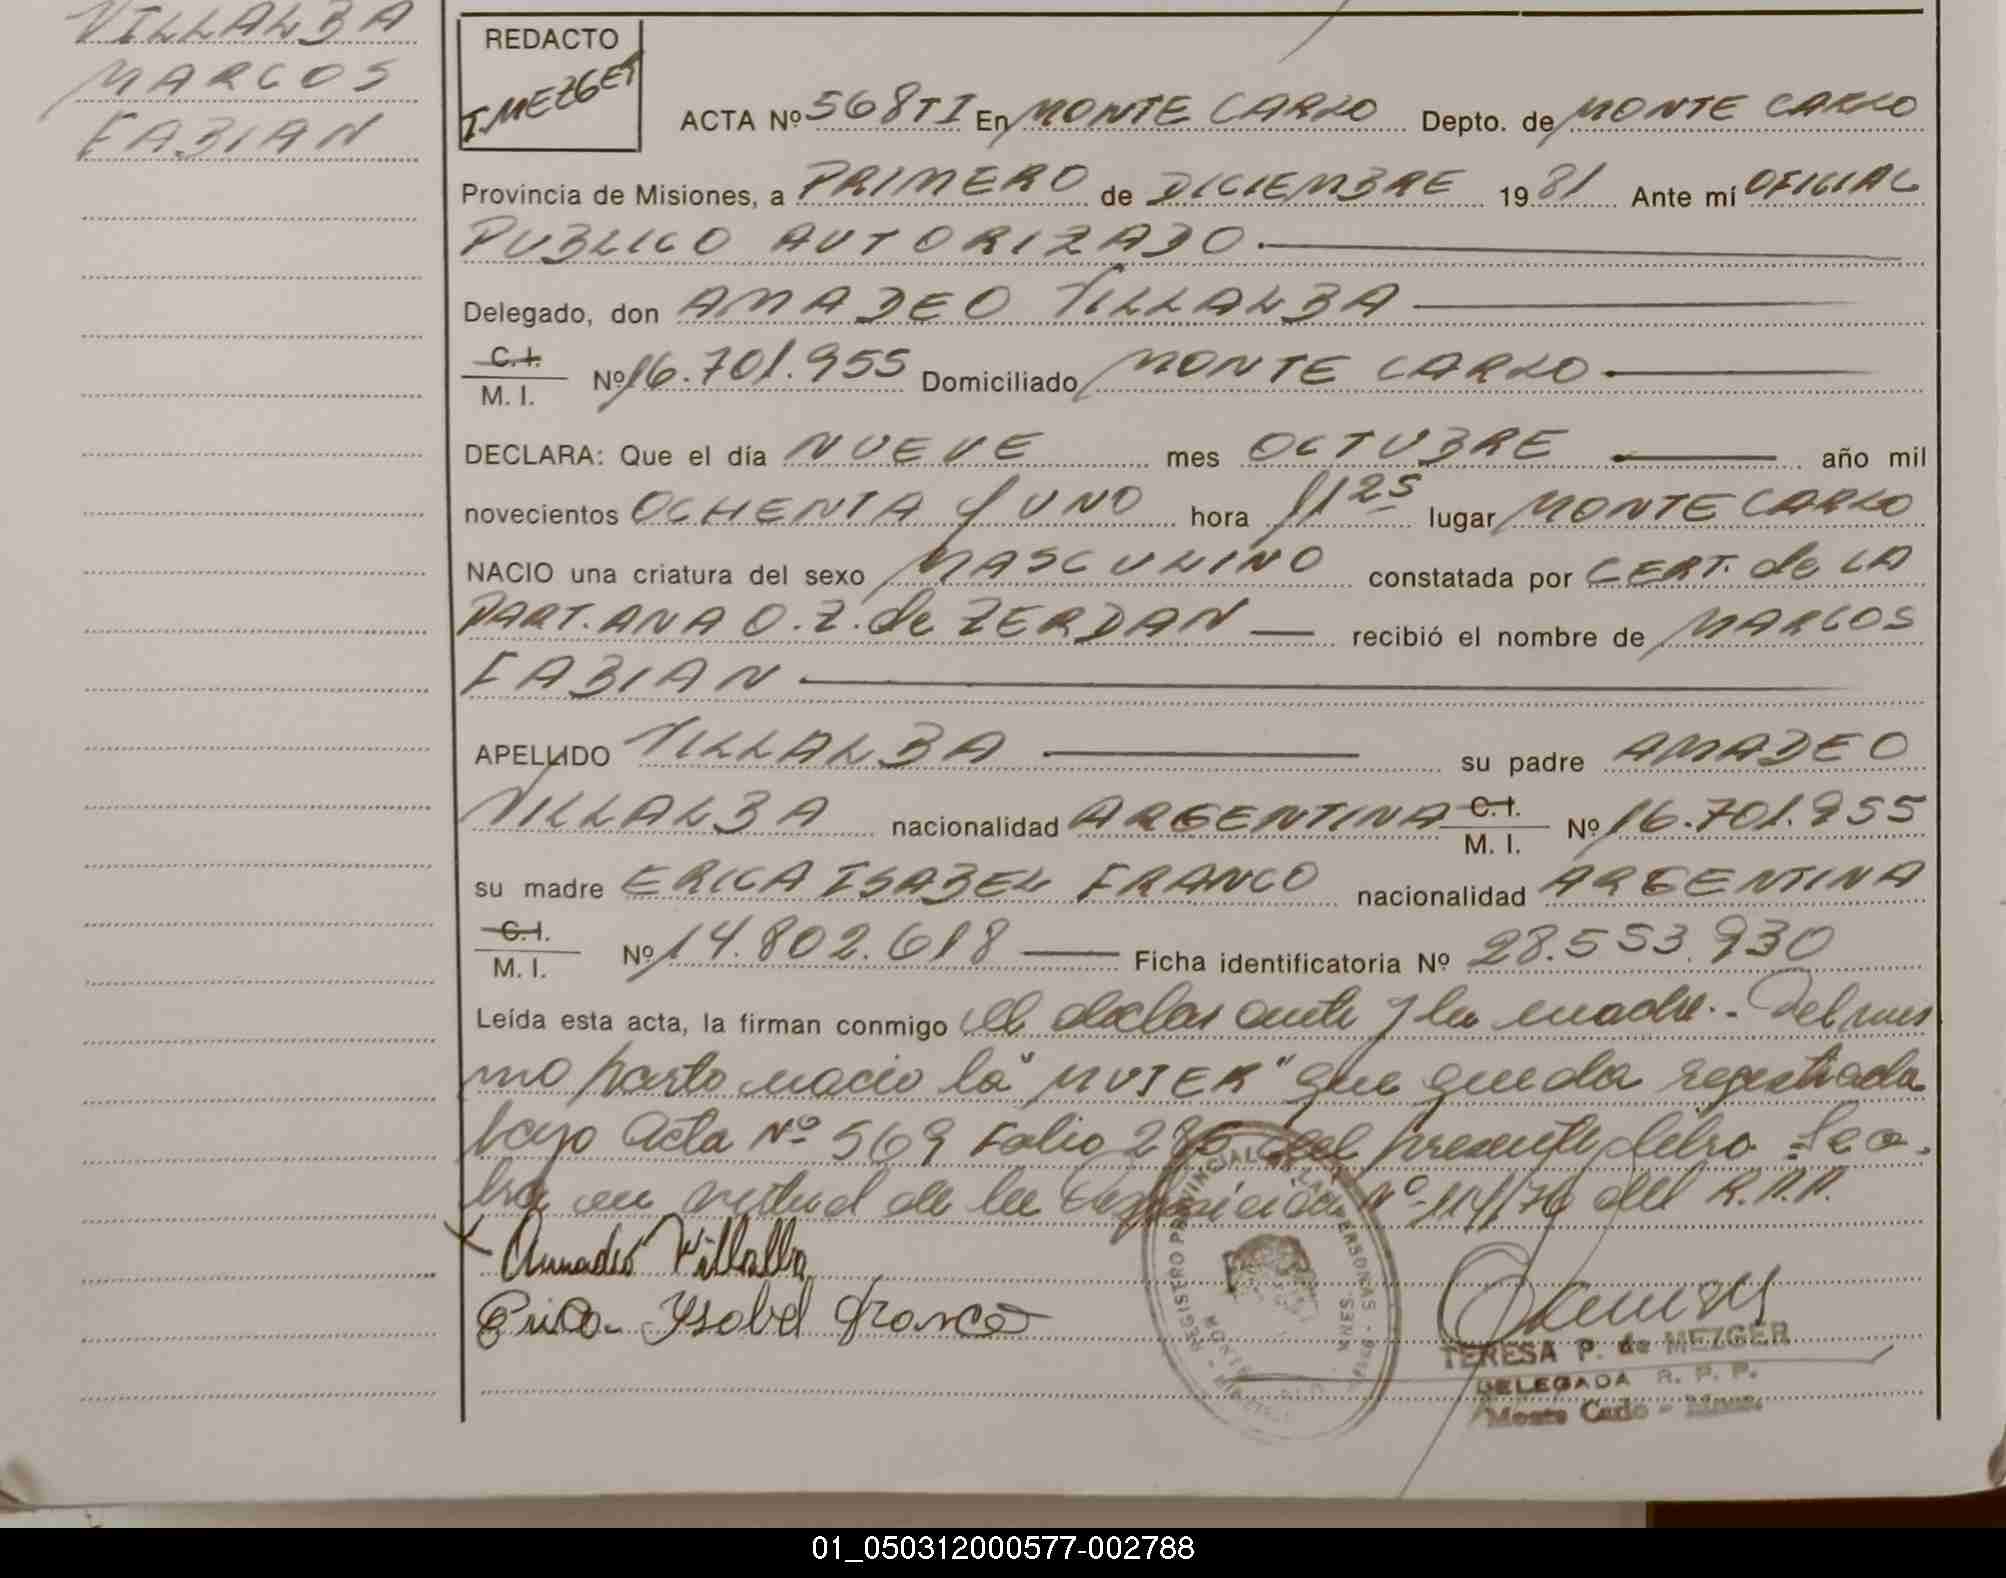 VILLALBA
MARCOS
FABIAN
REDACTO
T. MEZGER
ACTA Nº 568 TI En MONTE CARLO Depto. de MONTE CARLO
Provincia de Misiones, a PRIMERO de DICIEMBRE 1981 Ante mí OFICIAL
PUBLICO AUTORIZADO
Delegado, don AMADEO VILLALBA
C.I.
M. I. Nº 16.701.955 Domiciliado MONTE CARLO
DECLARA: Que el día NUEVE mes OCTUBRE año mil
novecientos OCHENTA y UNO hora 11 25 lugar MONTE CARLO
NACIO una criatura del sexo MASCULINO constatada por CERT. de LA
PART. ANA O. Z. de ZERDAN recibió el nombre de MARCOS
FABIAN
APELLIDO VILLALBA su padre AMADEO
VILLALBA nacionalidad ARGENTINA C.I. M. I. Nº 16.701.955
su madre ERICA ISABEL FRANCO nacionalidad ARGENTINA
C.I.
M. I. Nº 14.802.618 Ficha identificatoria Nº 28.553.930
Leída esta acta, la firman conmigo el declarante y la madre.- Del mis
mo parto nacio la "MUJER" que queda registrada
bajo Acta Nº 569 Folio del presente Libro.
en virtud de la Disposición Nº 114/76 del R.P.P.
Amadeo Villalba
Erica Ysabel Franco
REGISTRO PROVINCIAL DE LAS PERSONAS
TERESA P. de MEZGER
DELEGADA R. P. P.
Monte Carlo - Mnes.
01_050312000577-002788